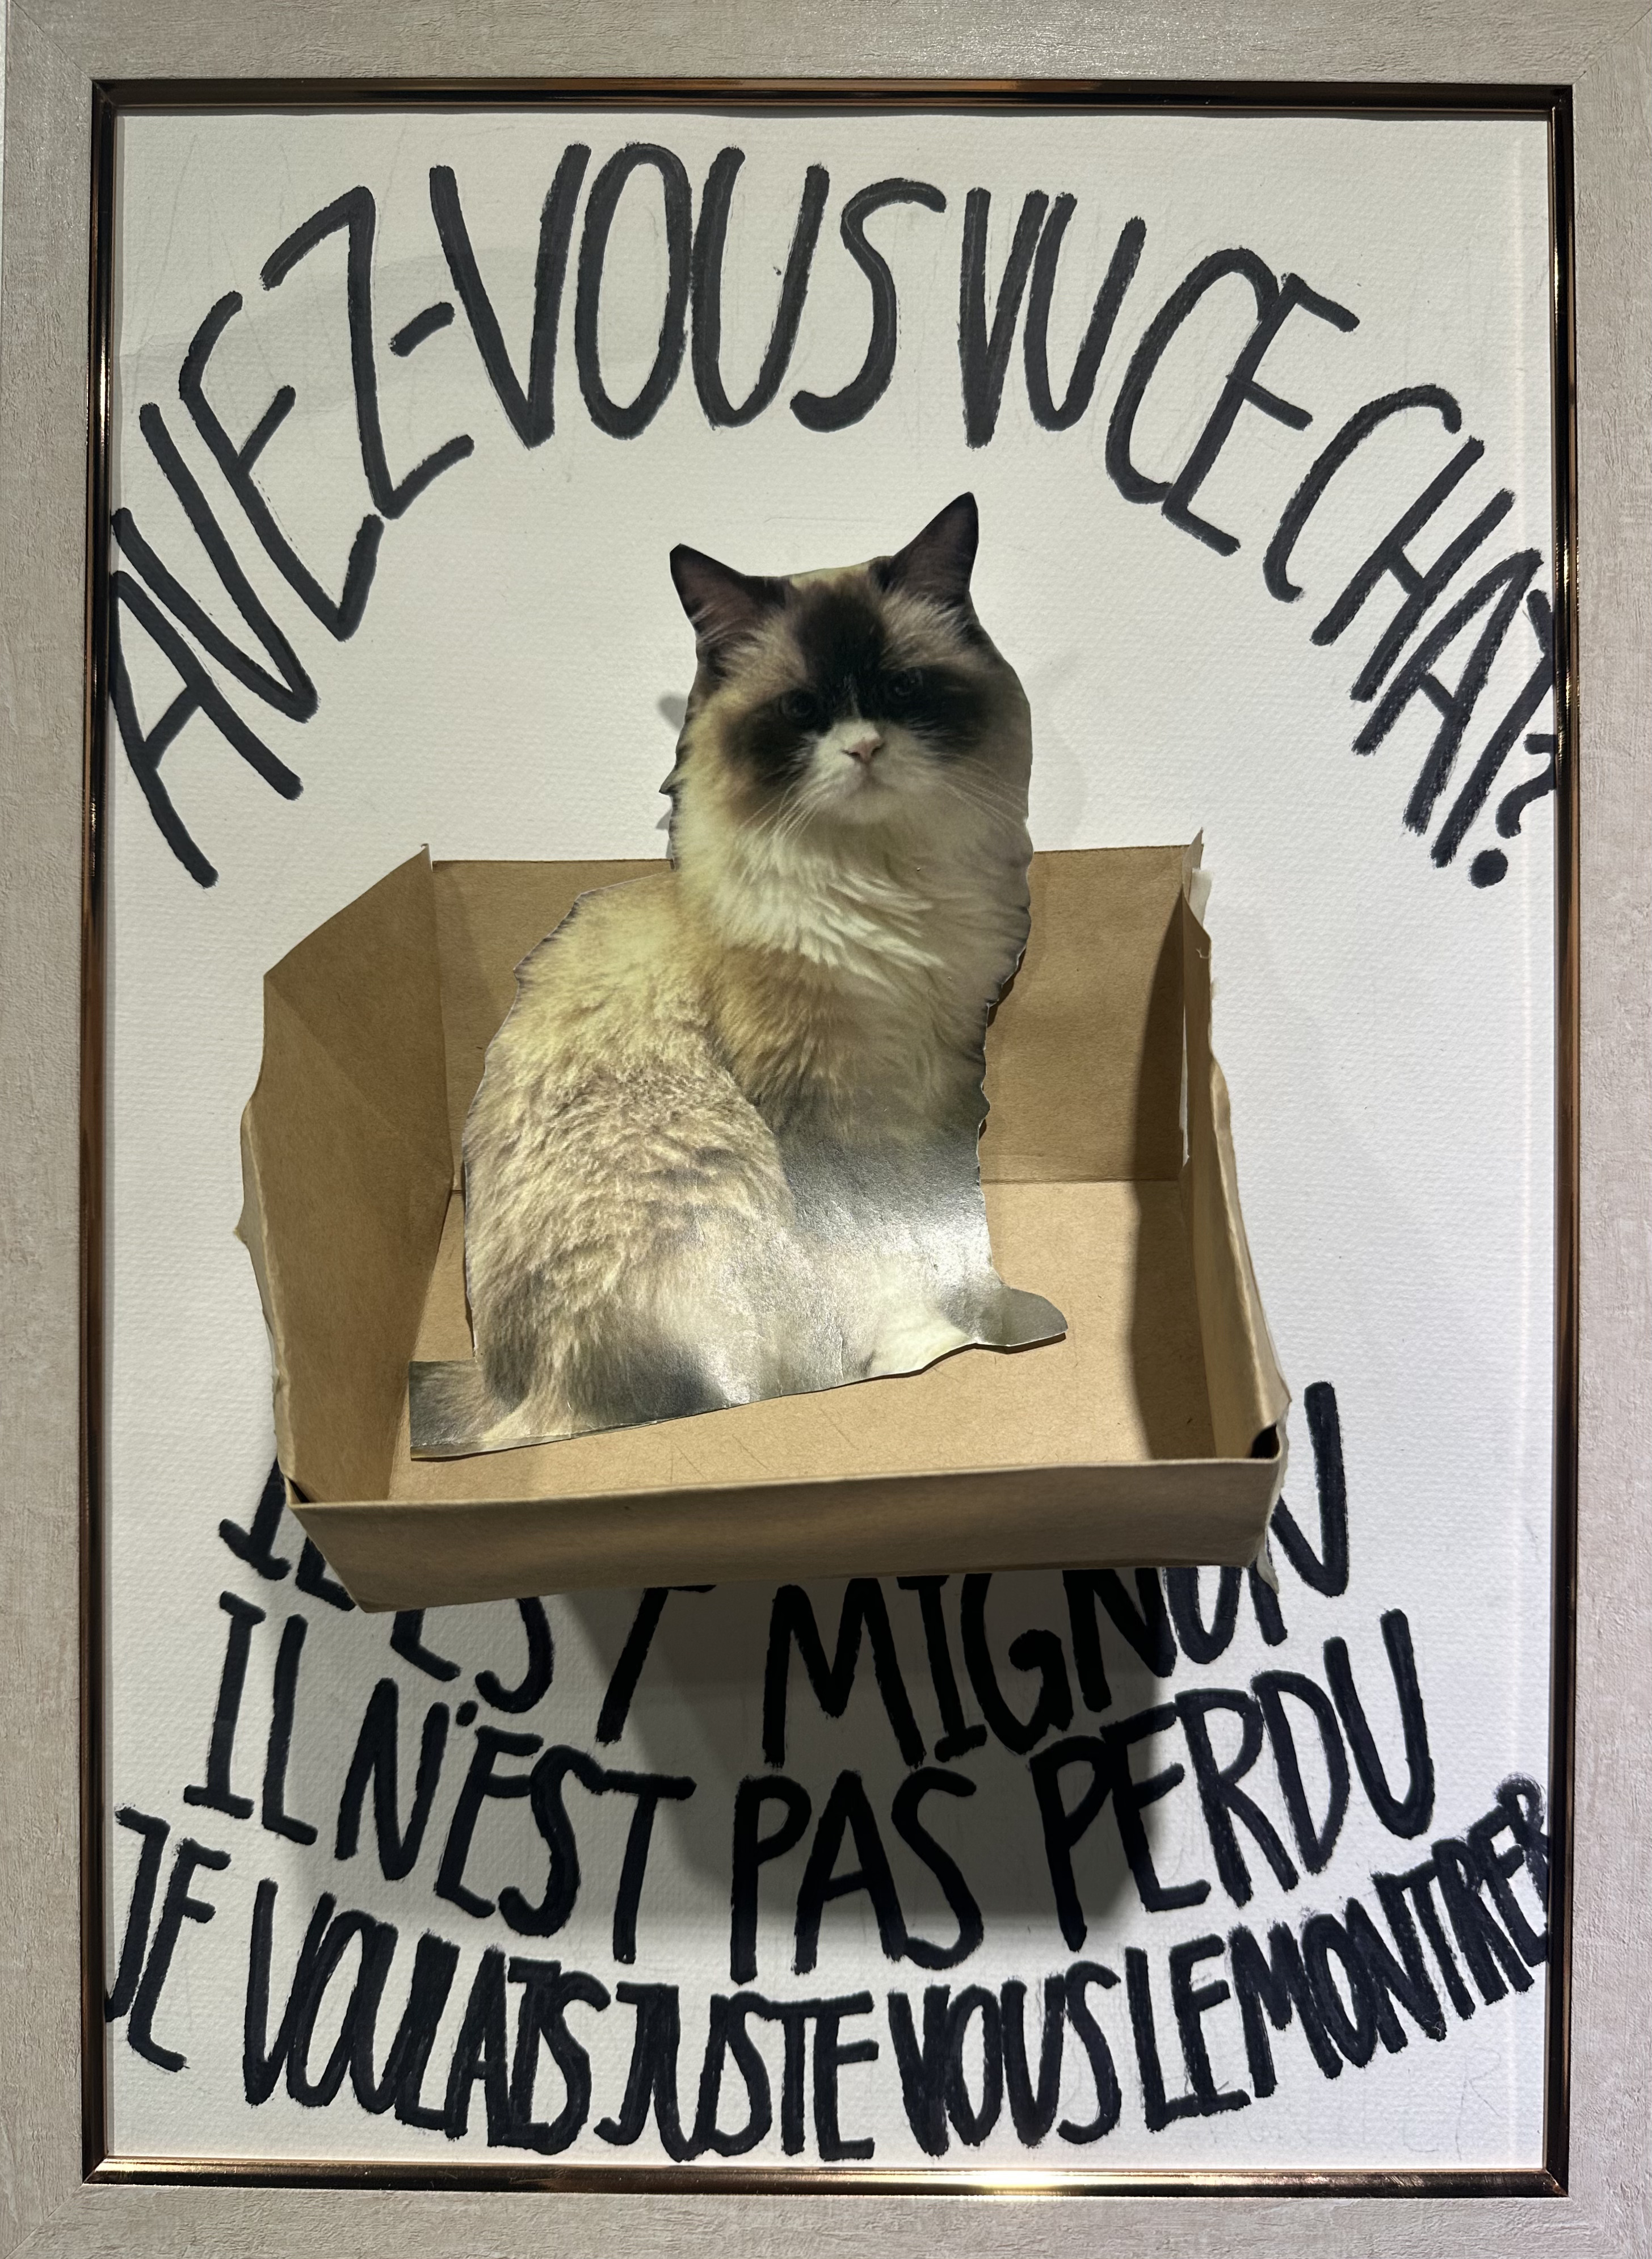 AVEZ-VOUS VU CE CHAT?
IL EST MIGNON
IL N'EST PAS PERDU
JE VOULAIS JUSTE VOUS LE MONTRER